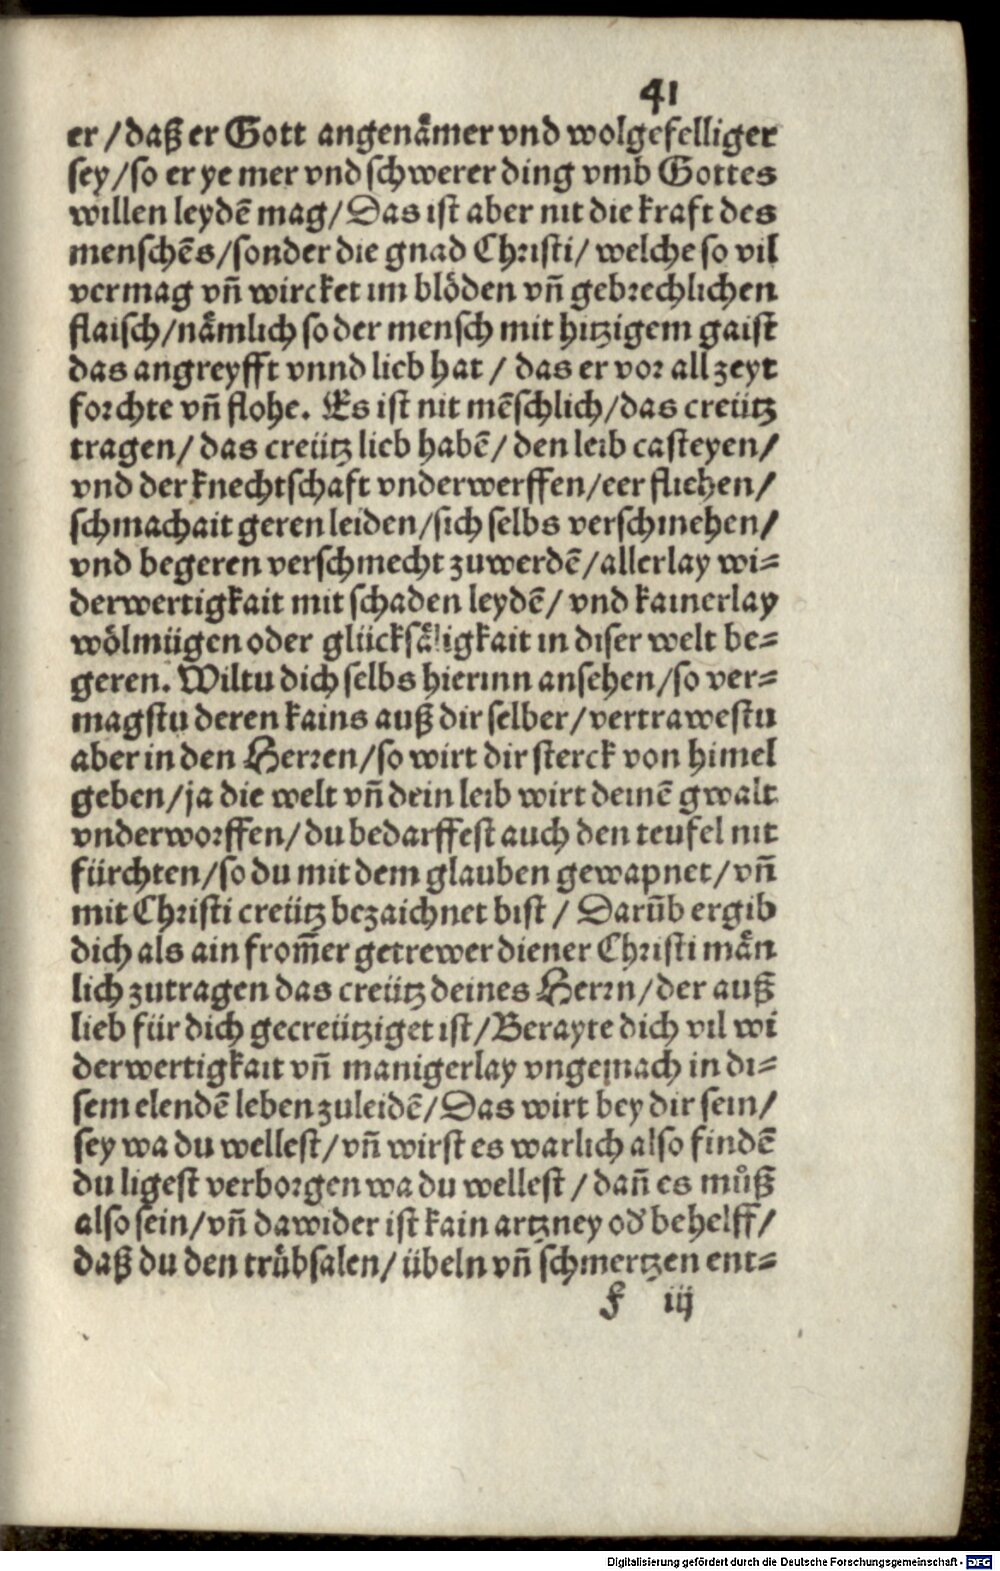 41
er / daß er Gott angenåmer vnd wolgefelliger
sey / so er ye mer vnd schwerer ding vmb Gottes
willen leydē mag / Das ist aber nit die kraft des
menschēs / sonder die gnad Christi / welche so vil
vermag vñ wircket im blöden vñ gebrechlichen
flaisch / nåmlich so der mensch mit hitzigem gaist
das angreyfft vnnd lieb hat / das er vor all zeyt
forchte vñ flohe. Es ist nit mēschlich / das creütz
tragen / das creütz lieb habē / den leib casteyen /
vnd der knechtschaft vnderwerffen / eer fliehen /
schmachait geren leiden / sich selbs verschmehen /
vnd begeren verschmecht zuwerdē / allerlay wi=
derwertigkait mit schaden leydē / vnd kainerlay
wölmügen oder glücksåligkait in diser welt be=
geren. Wiltu dich selbs hierinn ansehen / so ver=
magstu deren kains auß dir selber / vertrawestu
aber in den Herren / so wirt dir sterck von himel
geben / ja die welt vñ dein leib wirt deinē gwalt
vnderworffen / du bedarffest auch den teufel nit
fürchten / so du mit dem glauben gewapnet / vñ
mit Christi creütz bezaichnet bist / Darūb ergib
dich als ain from̄er getrewer diener Christi mån
lich zutragen das creütz deines Herrn / der auß
lieb für dich gecreütziget ist / Berayte dich vil wi
derwertigkait vñ manigerlay vngemach in di=
sem elendē leben zuleidē / Das wirt bey dir sein /
sey wa du wellest / vñ wirst es warlich also findē
du ligest verborgen wa du wellest / dañ es můß
also sein / vñ dawider ist kain artzney od' behelff /
daß du den trübsalen / übeln vñ schmertzen ent=
f iij
Digitalisierung gefördert durch die Deutsche Forschungsgemeinschaft - DFG